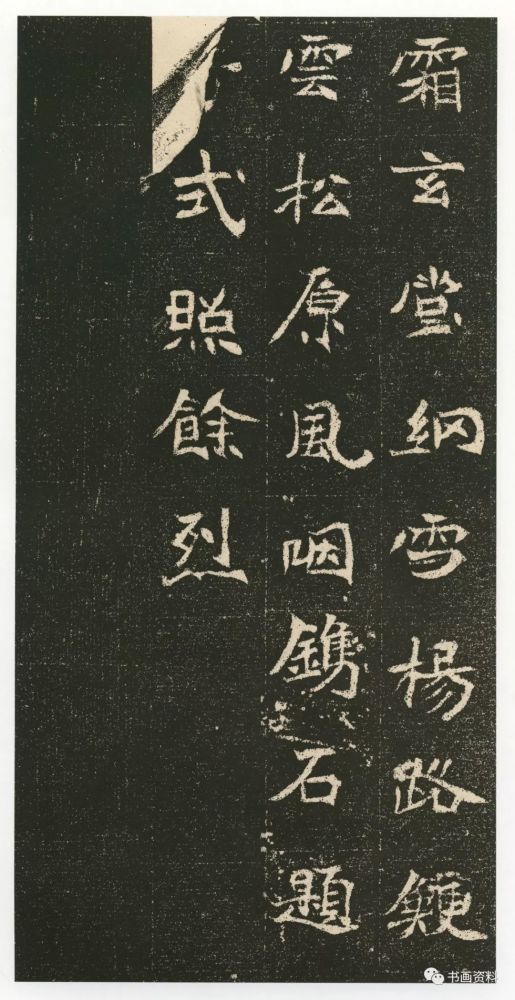 霜玄堂網雪楊路鯁
雲松原風咽鐫石題
式照餘烈
书画资料